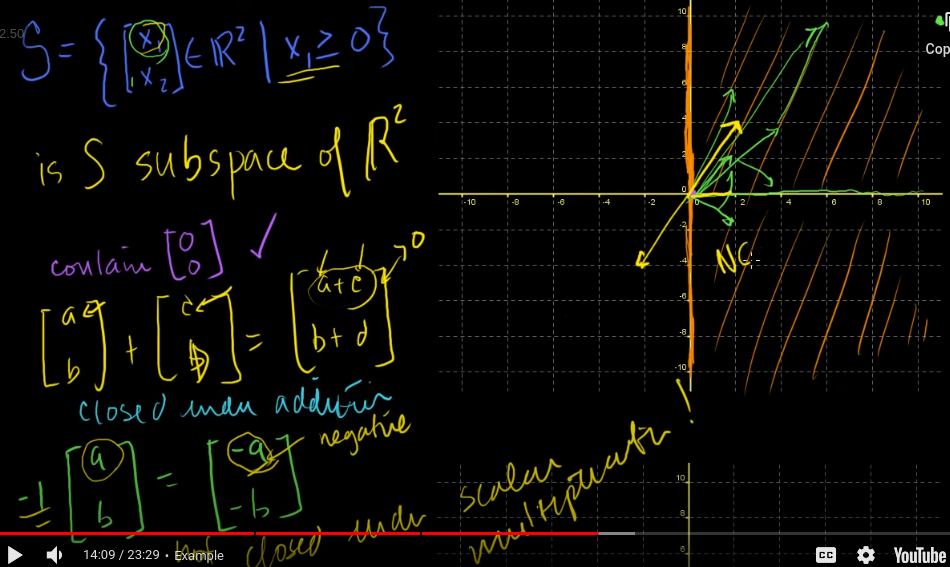 2.50
S = { [x₁ x₂] ∈ ℝ² | x₁ ≥ 0 }
is S subspace of ℝ²
contain [0 0] ✓
[a b] + [c d] = [a+c b+d] → 0
closed under addition
-1 [a b] = [-a -b] negative
not closed under scalar multiplication!
NO
Cop
10
8
6
4
2
0
-10 -8 -6 -4 -2 0 2 4 6 8 10
-4
-6
-8
-10
10
8
6
14:09 / 23:29 • Example
CC
YouTube